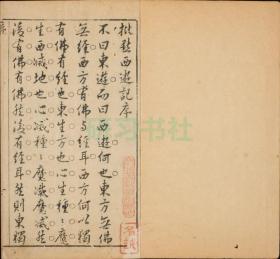 批點西遊記序
不曰東遊而曰西遊何也東方無佛
無經西方有佛與經耳西方何以獨
有佛有經也東生方也心生種種魔
生西滅地也心滅種種魔滅魔滅然
後有佛有佛然後有經耳然則東獨
序